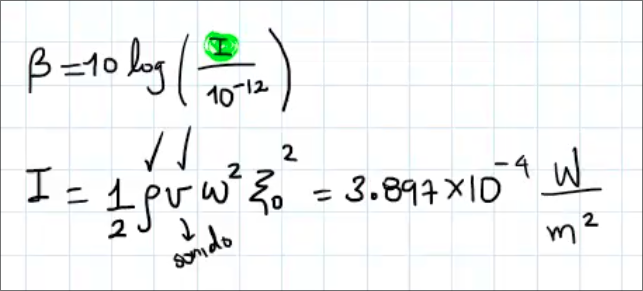 β = 10 log ( I / 10⁻¹² )
I = 1/2 ρ v ω² ξ₀² = 3.897 × 10⁻⁴ W/m²
sonido